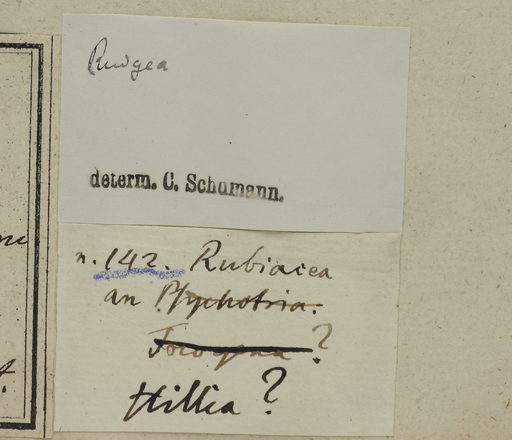 Rudgea
determ. C. Schumann.
n. 142. Rubiacea
an Psychotria.
Tocoyena ?
Hillia ?